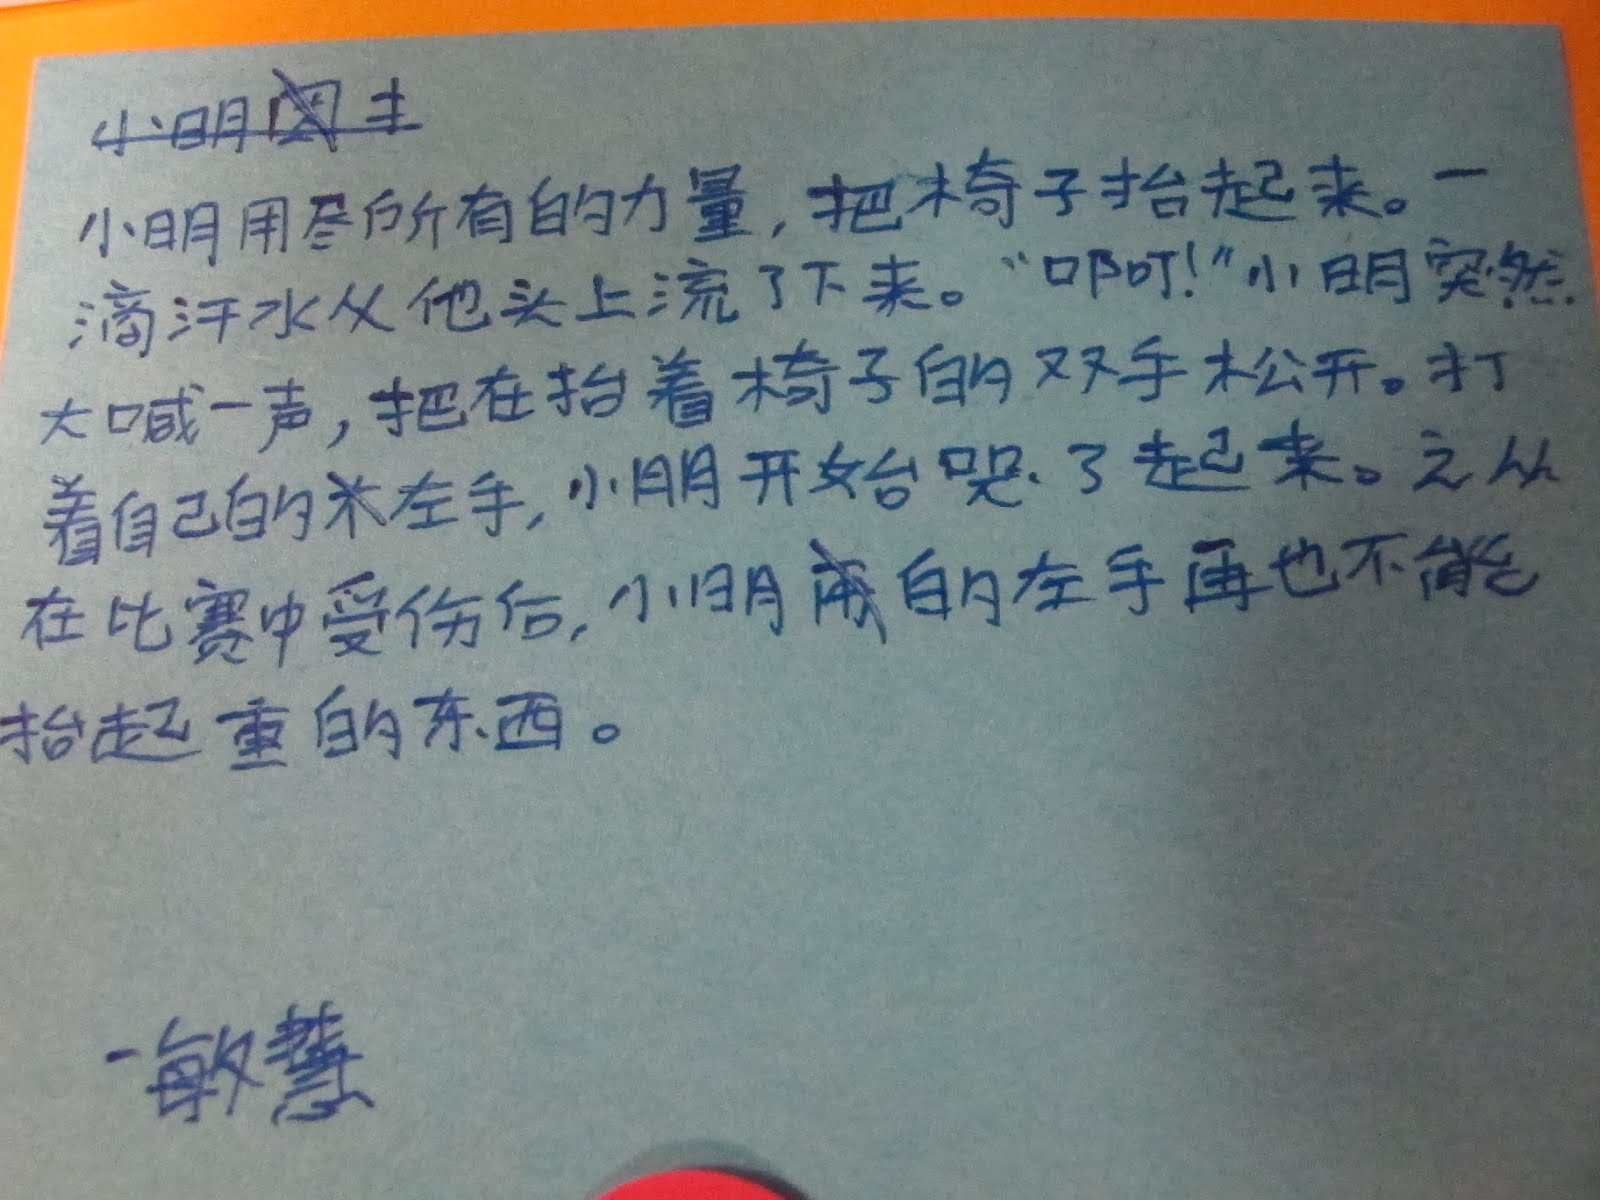 小明 主
小明用尽所有的力量，把椅子抬起来。一
滴汗水从他头上流了下来。“叩叮！”小明突然
大喊一声，把在抬着椅子的双手松开。打
着自己的 左手，小朋开始哭了起来。之从
在比赛中受伤后，小明 的左手再也不能
抬起重的东西。
-敏慧